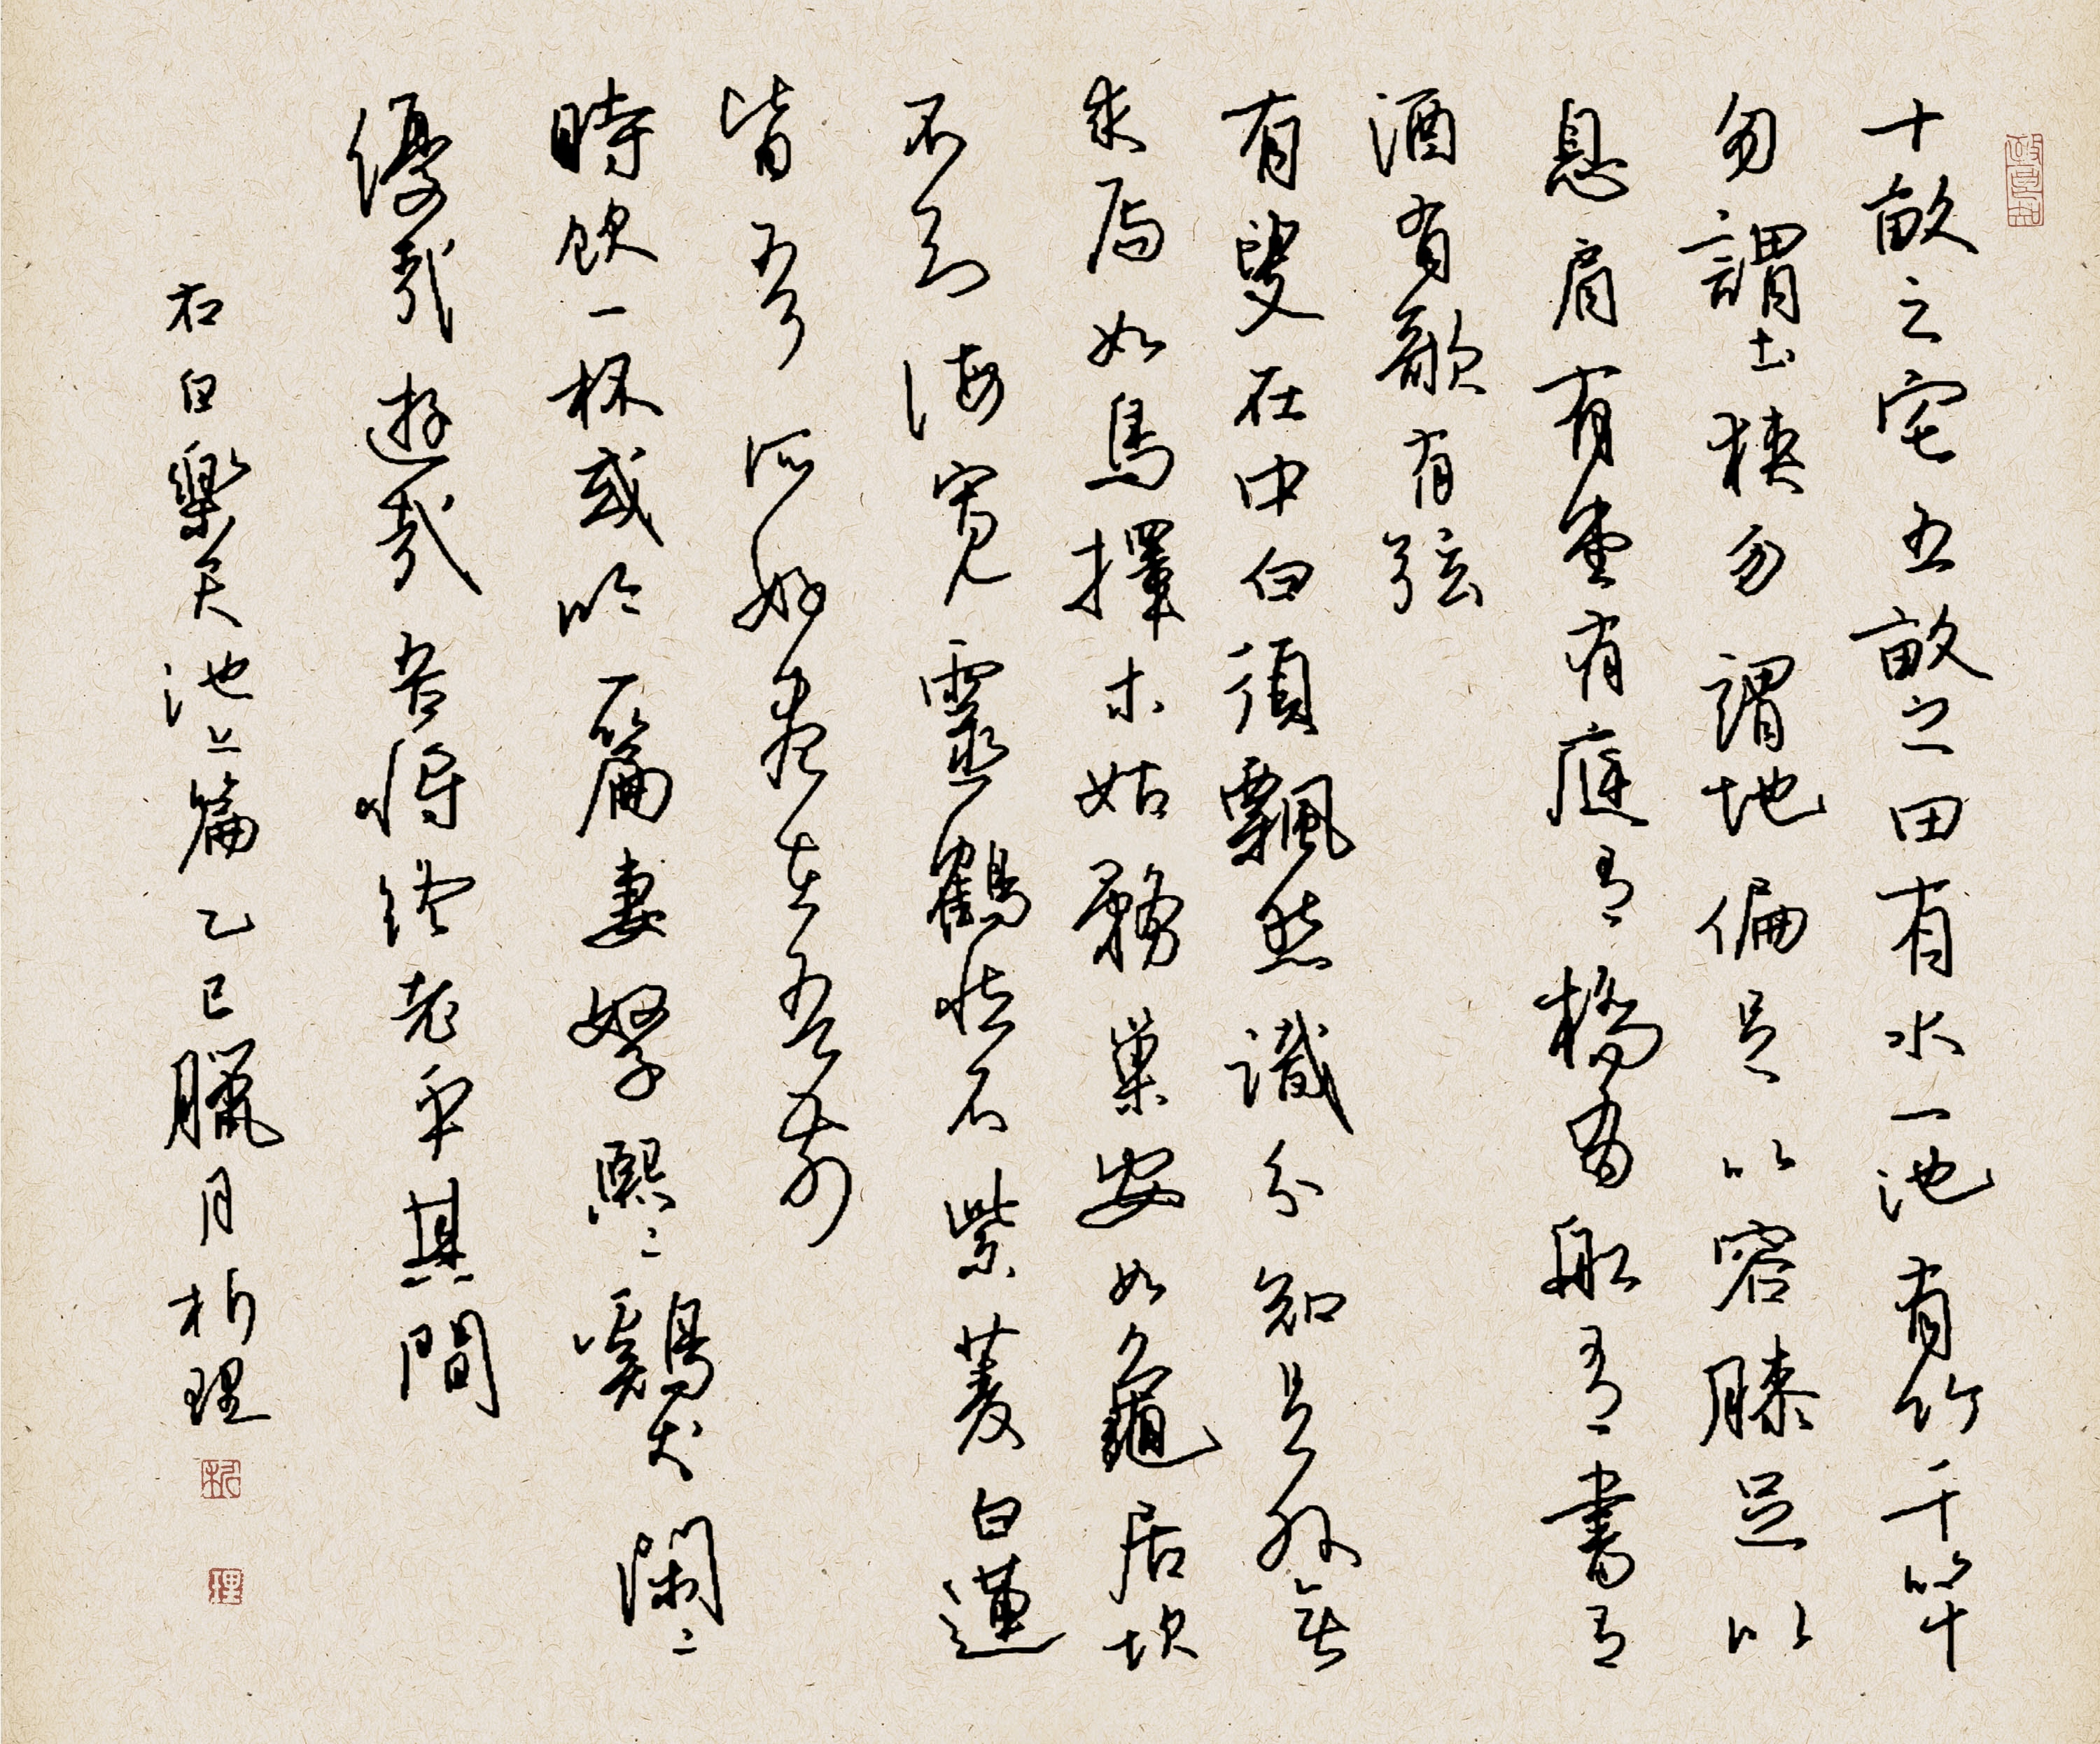 十畝之宅五畝之田有水一池有竹千竿
勿謂土狹勿謂地偏足以容膝足以
息肩有堂有庭有橋有船有書有
酒有歌有弦
有叟在中白須飄然識分知足外無
求焉如鳥擇木姑務巢安如龜居坎
不知海寬靈鶴怪石紫菱白蓮
皆吾所好盡在吾前
時飲一杯或吟一篇妻孥熙〻鷄犬閑〻
優哉遊哉吾將終老乎其間
右白樂天池上篇乙巳臘月析理
理